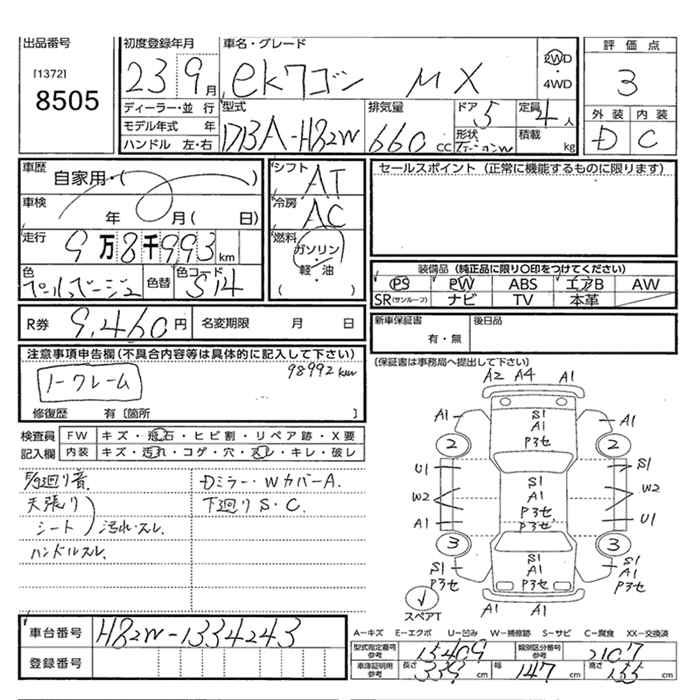 出品番号
[1372]
8505
初度登録年月
23 9月
車名・グレード
ekワゴン MX
2WD
・
4WD
評価点
3
外装 内装
D C
ディーラー・並行
モデル年式 年
ハンドル 左・右
型式
DBA-H82W
排気量
660 cc
ドア 5
定員 4人
形状
積載 kg
車歴
自家用・( )
車検
年 月( 日)
走行
9万8千993km
色
パールベージュ
色替
色コード
S14
シフト
AT
冷房
AC
燃料
ガソリン
・
軽・油
( )
セールスポイント(正常に機能するものに限ります)
装備品(純正品に限り〇印をつけてください)
PS PW ABS エアB AW
SR(サンルーフ) ナビ TV 本革
R券 9,460円 名変期限 月 日
新車保証書
有・無
後日品
(保証書は事務局へ提出して下さい)
注意事項申告欄(不具合内容等は具体的に記入して下さい)
98992km
ノークレーム
修復歴 有〔箇所 〕
検査員
記入欄
FW キズ・飛石・ヒビ割・リペア跡・X要
内装 キズ・汚れ・コゲ・穴・スレ・キレ・破レ
天張り
シート
汚れ・スレ
ハンドルスレ
Dミラー・WカバーA.
下廻りS・C.
A2 A4 A1
A1 S1 A1 P3セ A1
2 2
U1 S1 A1 P3セ P3セ S1
W2 W2
A1 U1
3 3
S1 A1 P3セ
S1 A1 P3セ
S1 A1 P3セ
A1 A1
スペアT
車台番号 H82W-1334243
登録番号
A-キズ E-エクボ U-凹み W-補修跡 S-サビ C-腐食 XX-交換済
型式指定番号参考 15409 類別区分番号参考 2107
車庫証明用参考 長さ 339cm 幅 147cm 高さ 155cm